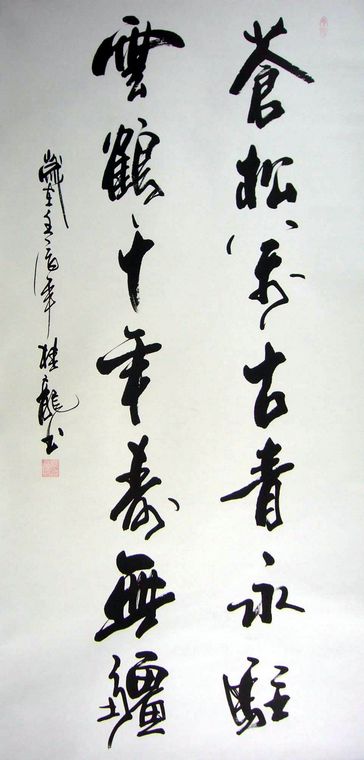 蒼松萬古青永駐
雲鶴千年壽無疆
歲在壬年桂龍書